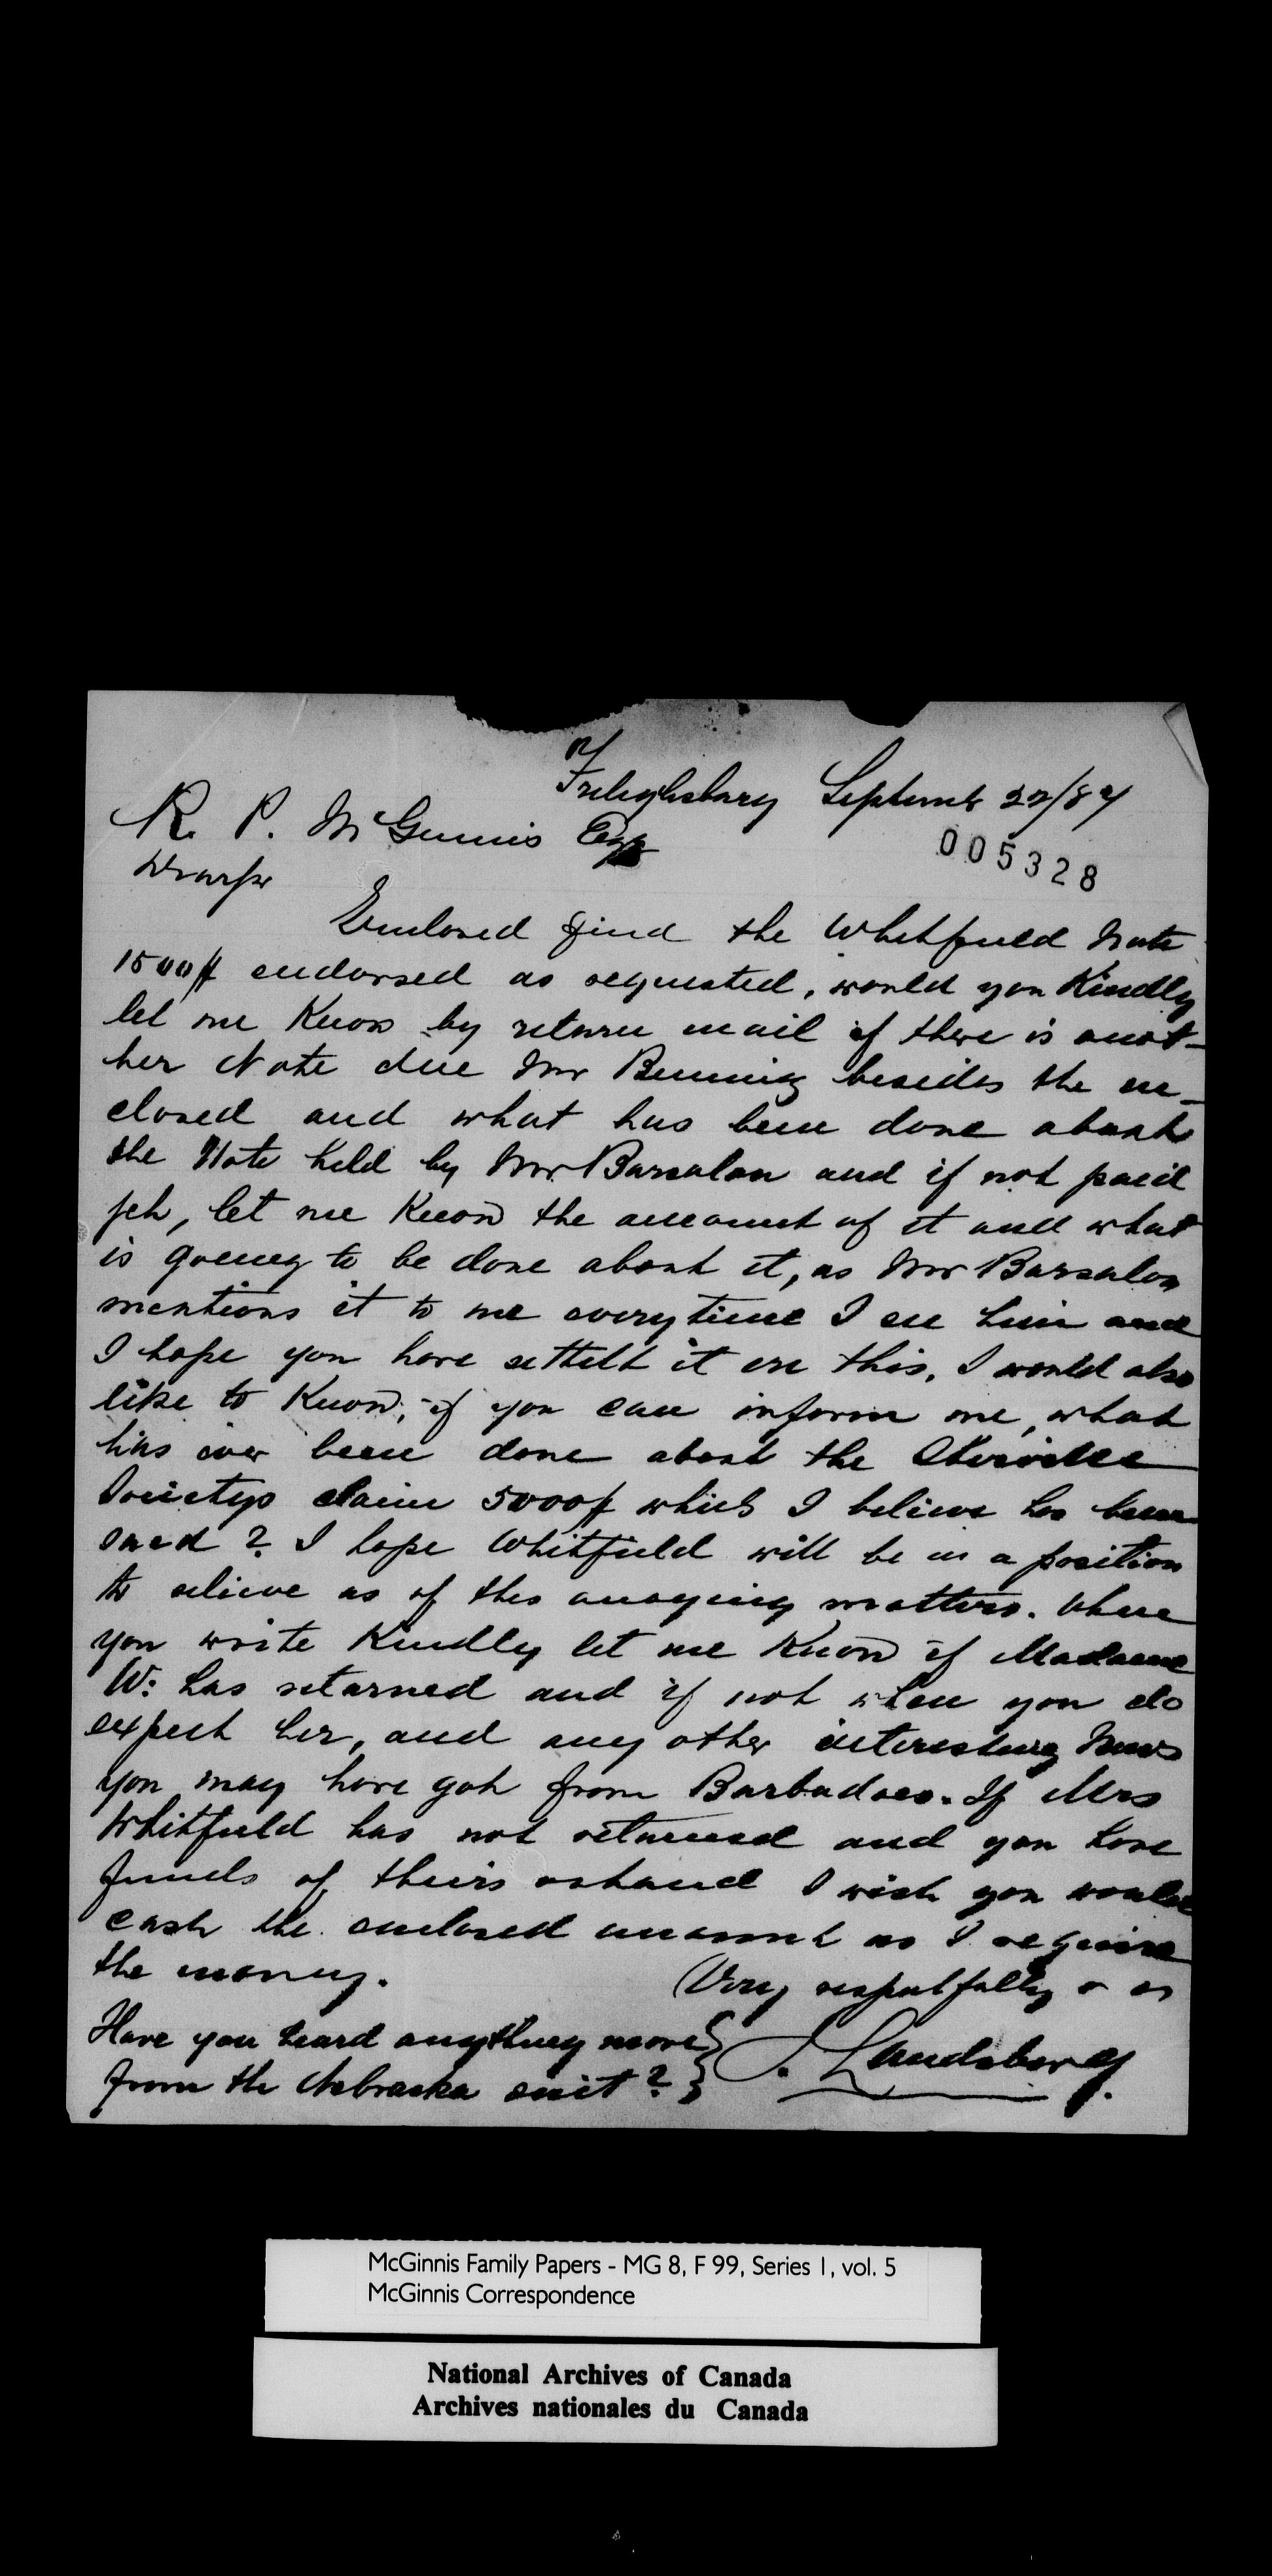 Frelighsburg Septemb 22/84
R. P. McGinnis Esqr
005328
Enclosed find the Whitfield Note
1500$ endorsed as requested, would you Kindly
let me Know by return mail if there is anot-
her Note due Mr Benning besides the en-
closed and what has been done about
the Note held by Mr Barsalou and if not paid
yeh, let me Know the amount of it and what
is going to be done about it, as Mr Barsalou
mentions it to me everytime I see him and
I hope you have settelt it ere this. I would also
like to Know, if you can inform me, what
has ever been done about the
Societys claim 5000$ which I believe has been
sued ? I hope Whitfield will be in a position
to relieve us of this anoying matters. When
you write Kindly let me Know if Madame
W: has returned and if not when you do
expect her, and any other interesting News
you may have goh from Barbadoes. If Mrs
Whitfield has not returned and you have
funds of theirs onhand I wish you would
cash the enclosed amount as I require
the money.
Very respectfully
Have you heard anything more
from the Nebraska suit ?
J. Landsberg.
McGinnis Family Papers - MG 8, F 99, Series 1, vol. 5
McGinnis Correspondence
National Archives of Canada
Archives nationales du Canada